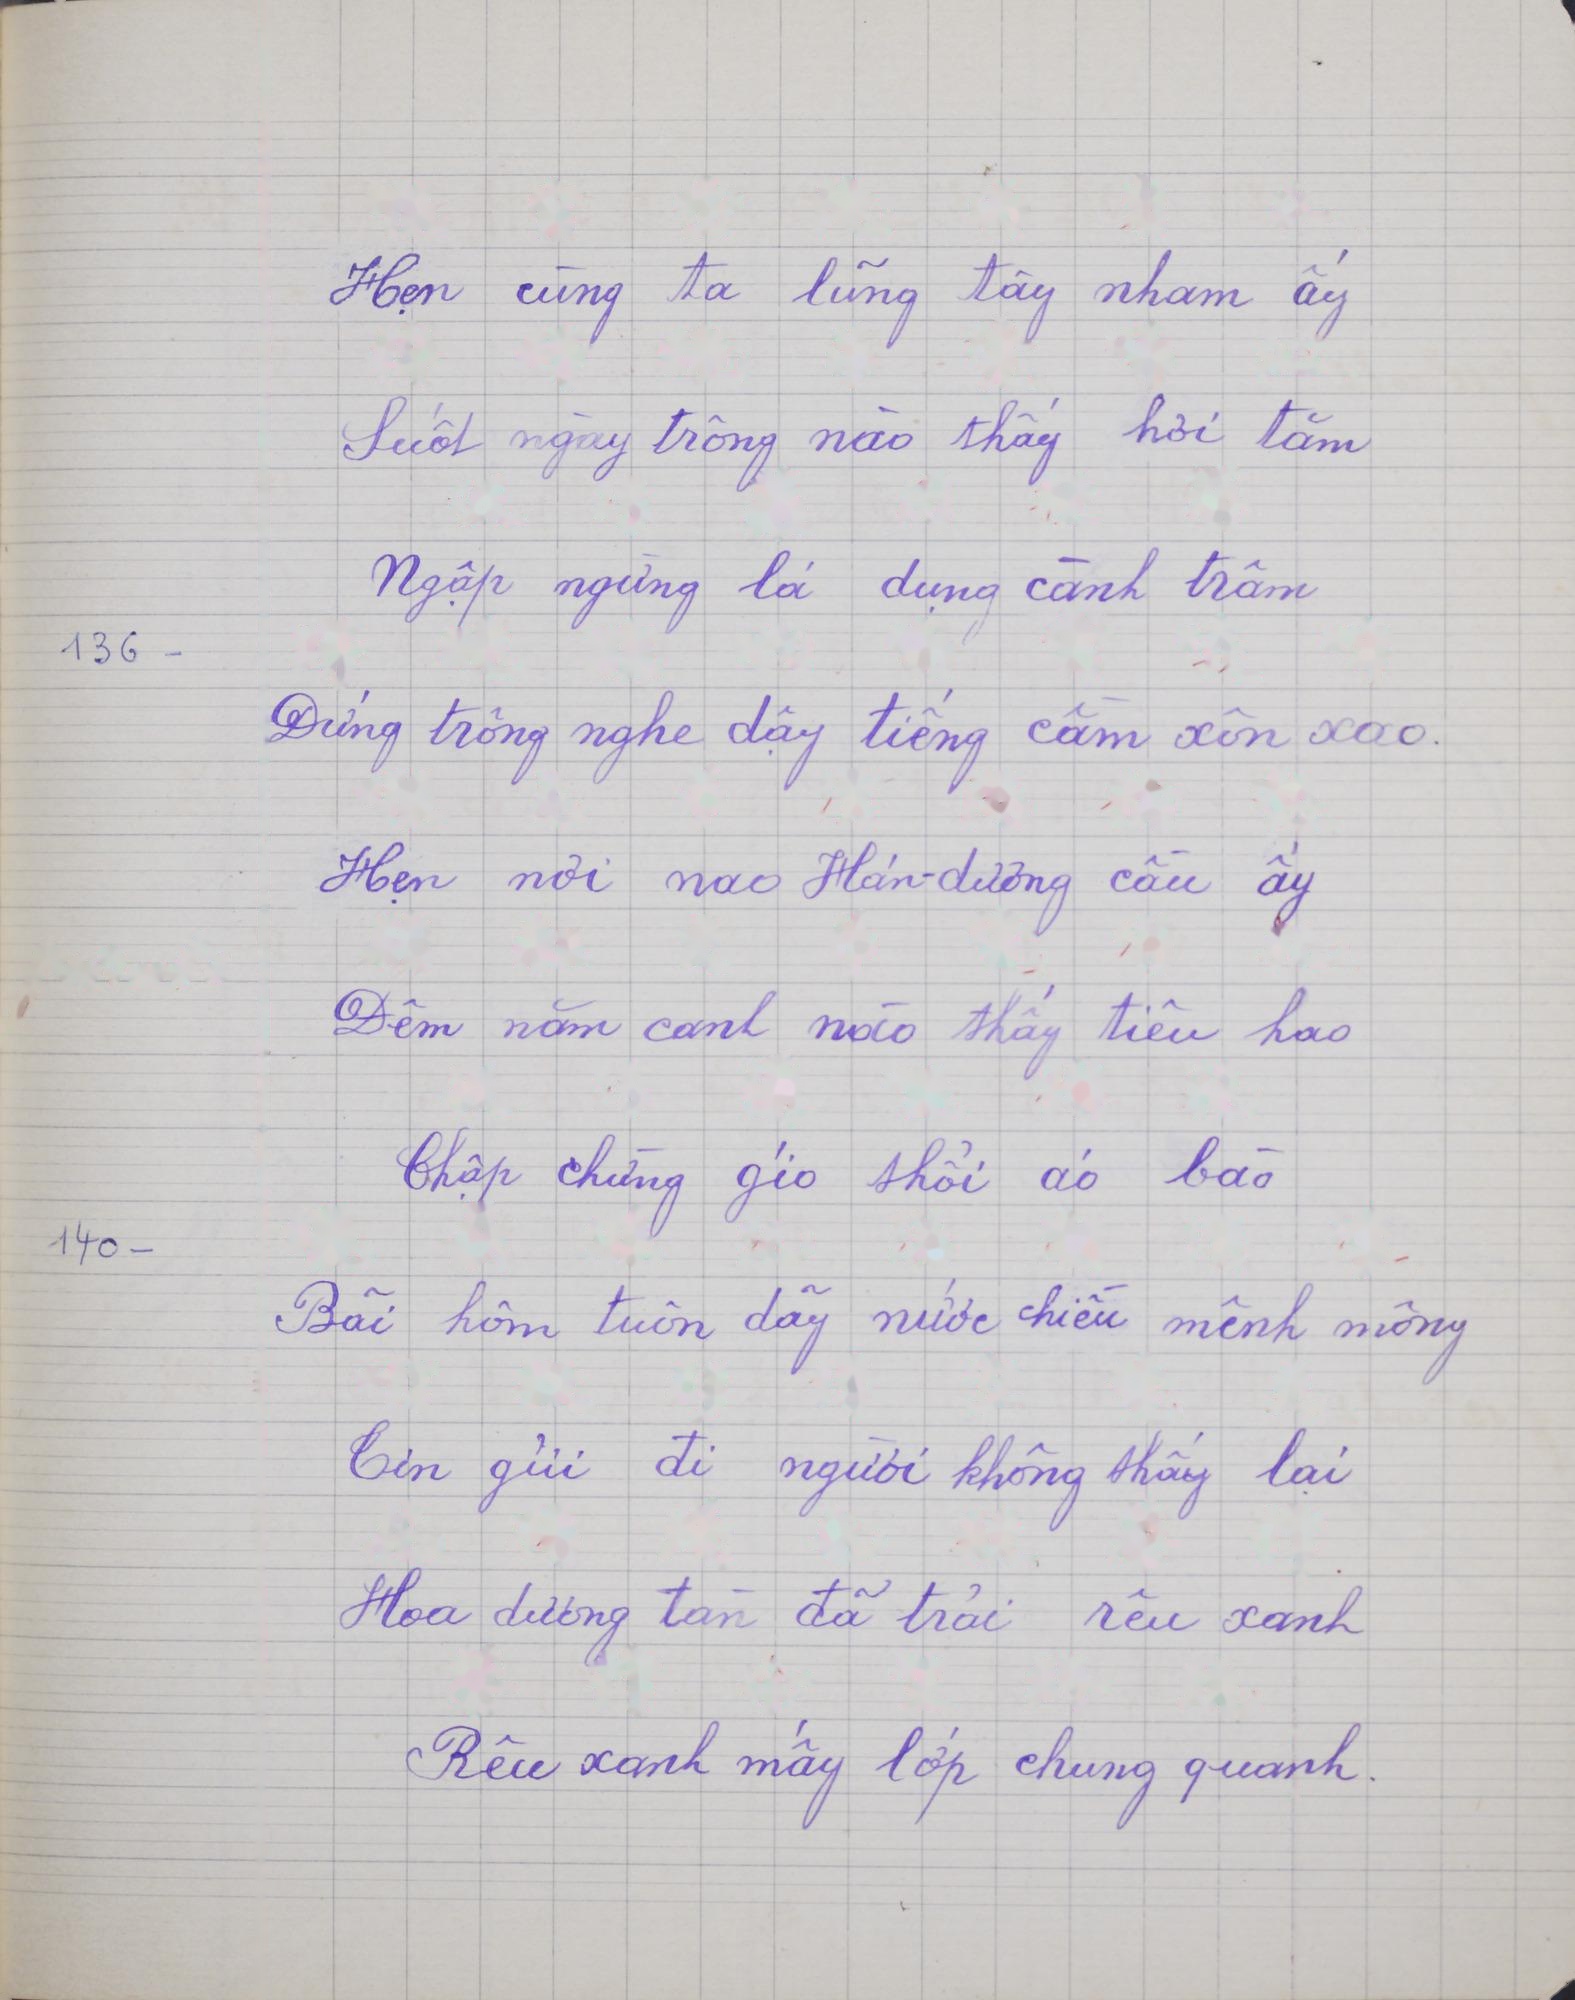 Hẹn cùng ta lũng tây nham ấy
Suốt ngày trông nào thấy hơi tăm
Ngập ngừng lá dụng cành trâm
136 -
Đứng trông nghe dậy tiếng cầm xôn xao.
Hẹn nơi nao Hán-dương cầu ấy
Đêm năm canh nào thấy tiêu hao
Chập chừng gío thổi aó bào
140 -
Bãi hôm tuôn dẫy nước chiều mênh mông
Tin gửi đi người không thấy lại
Hoa dương tàn đã trải rêu xanh
Rêu xanh mấy lớp chung quanh.